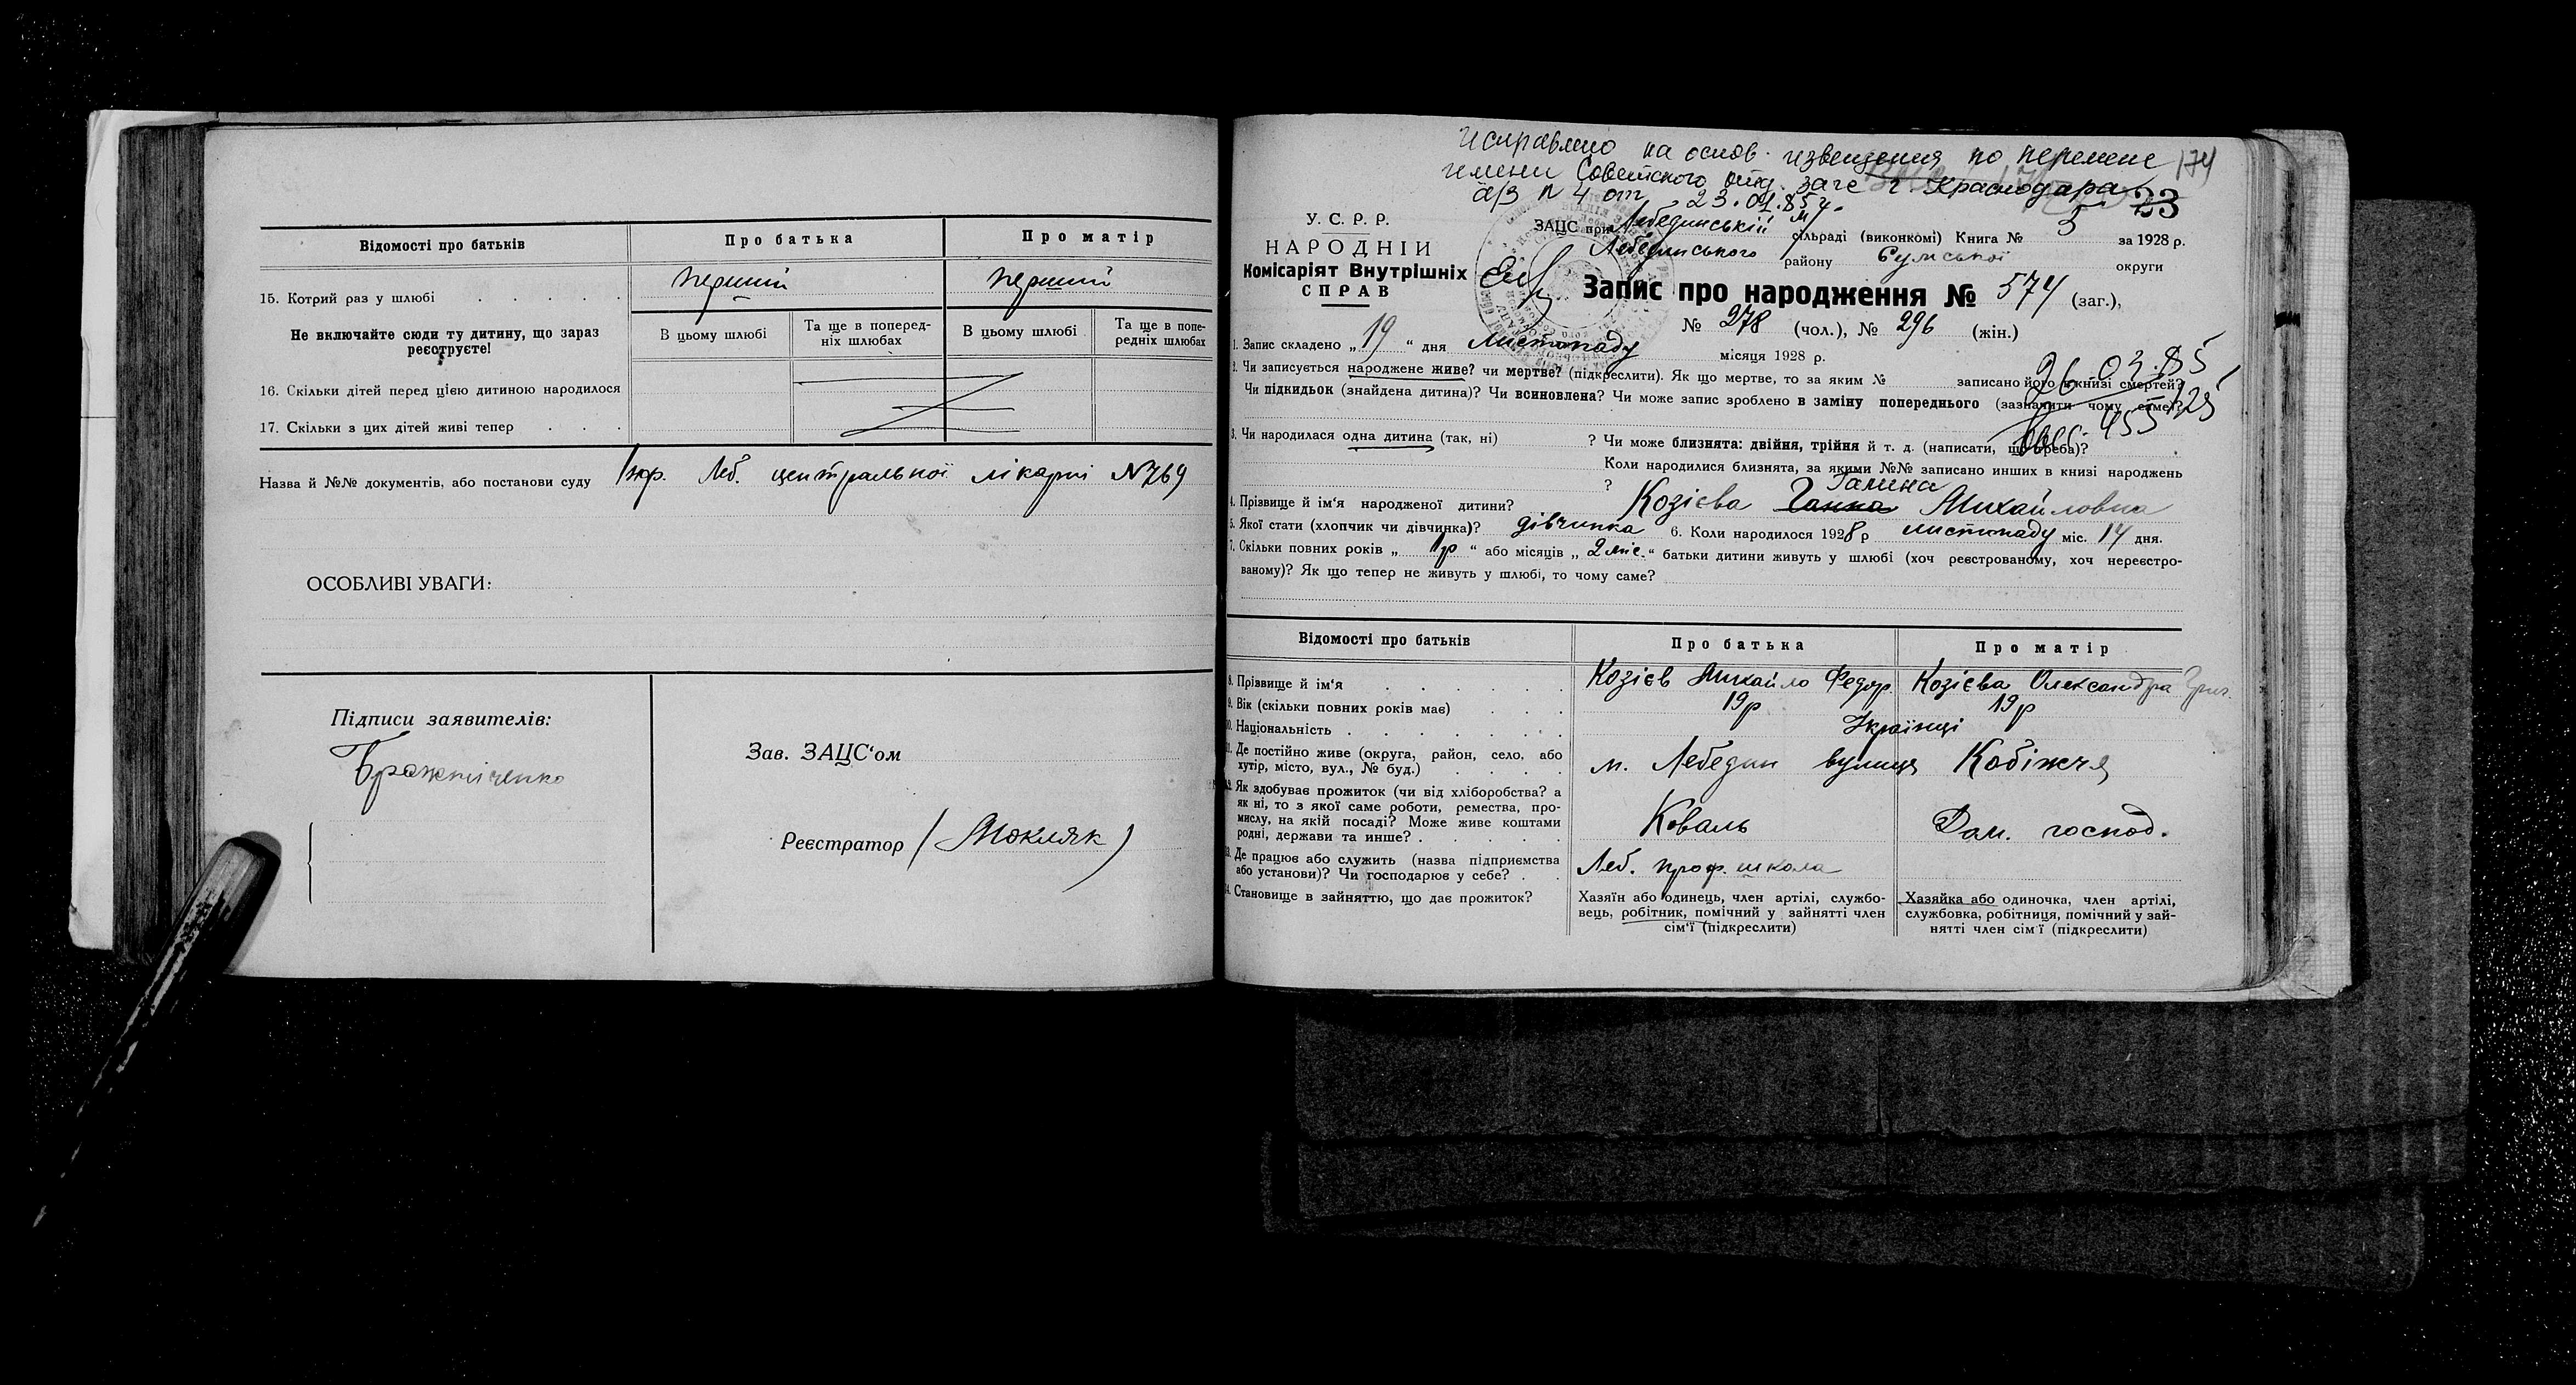 Відомості про батьків
Про батька
Про матір
15. Котрий раз у шлюбі
перший
перший
Не включайте сюди ту дитину, що зараз реєструєте!
В цьому шлюбі
Та ще в поперед-
ніх шлюбах
В цьому шлюбі
Та ще в попе-
редніх шлюбах
16. Скільки дітей перед цією дитиною народилося
17. Скільки з цих дітей живі тепер
Назва й №№ документів, або постанови суду
Леб. центральної лікарні №769
ОСОБЛИВІ УВАГИ:
Підписи заявителів:
Зав. ЗАЦС‘ом
Реєстратор (Мокляк)
Исправлено на основ. извещения по перемене 174
имени Советского отд. загс г. Краснодара
а/з п 4 от 23.01.85г.
23
У. С. Р. Р.
НАРОДНІЙ
Комісаріят Внутрішніх
СПРАВ
ЗАЦС при Лебединській м сільраді (виконкомі) Книга № 5 за 1928 р.
Лебединського району Сумської округи
Запис про народження № 574 (заг.),
№ 278 (чол.), № 296 (жін.)
1. Запис складено „19“ дня листопаду місяця 1928 р.
2. Чи записується народжене живе? чи мертве? (підкреслити). Як що мертве, то за яким № записано його в книзі смертей?
26.03.85
Чи підкидьок (знайдена дитина)? Чи всиновлена? Чи може запис зроблено в заміну попереднього (зазначити чому саме)?
3. Чи народилася одна дитина (так, ні) ? Чи може близнята: двійня, трійня й т. д. (написати, що треба)?
Коли народилися близнята, за якими №№ записано инших в книзі народжень
?
Галина
4. Прізвище й ім‘я народженої дитини? Козієва Ганна Михайловна
5. Якої стати (хлопчик чи дівчинка)? дівчинка 6. Коли народилося 1928 р листопаду міс. 14 дня.
7. Скільки повних років „ 1р “ або місяців „ 2 міс. “ батьки дитини живуть у шлюбі (хоч реєстрованому, хоч нереєстро-
ваному)? Як що тепер не живуть у шлюбі, то чому саме?
Відомості про батьків
Про батька
Про матір
8. Прізвище й ім‘я
Козієв Михайло Федор.
Козієва Олександра Григ.
9. Вік (скільки повних років має)
19р
19р
10. Національність
Українці
11. Де постійно живе (округа, район, село, або
хутір, місто, вул., № буд.)
м. Лебедин вулиця Кобіжча
12. Як здобуває прожиток (чи від хліборобства? а
як ні, то з якої саме роботи, ремества, про-
мислу, на якій посаді? Може живе коштами
родні, держави та инше?
Коваль
Дом. господ.
13. Де працює або служить (назва підприємства
або установи)? Чи господарює у себе?
Леб. проф. школа
14. Становище в зайняттю, що дає прожиток?
Хазяїн або одинець, член артілі, службо-
вець, робітник, помічний у зайнятті член
сім‘ї (підкреслити)
Хазяйка або одиночка, член артілі,
службовка, робітниця, помічний у зай-
нятті член сім‘ї (підкреслити)